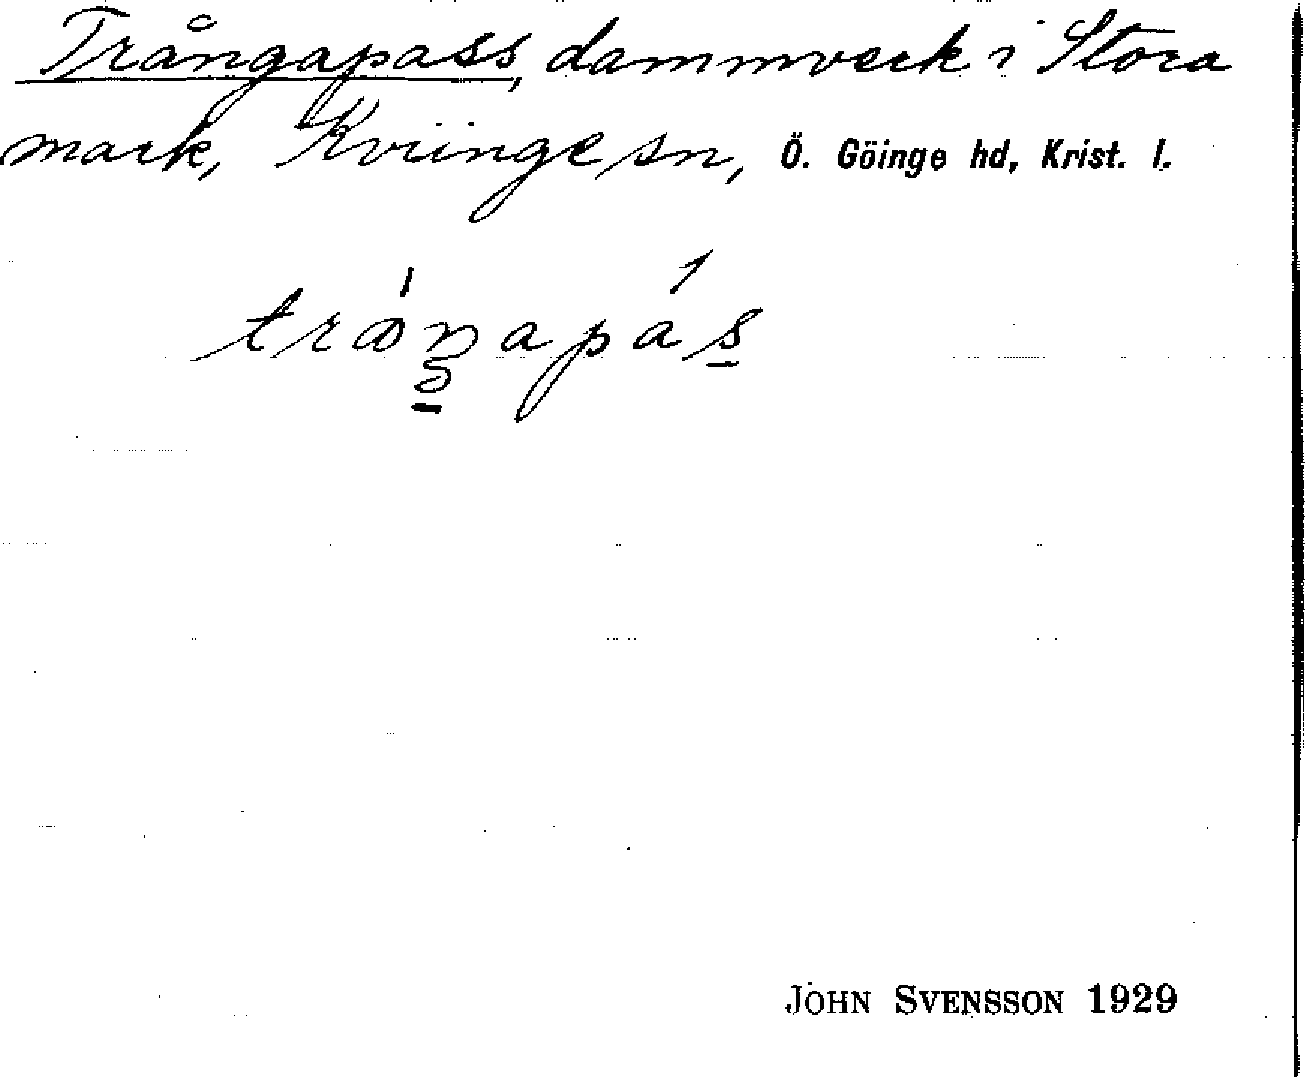 Trångapass, dammverk i Stora
mark, Kviinge sn, Ö. Göinge hd, Krist. l.
JOHN SVENSSON 1929